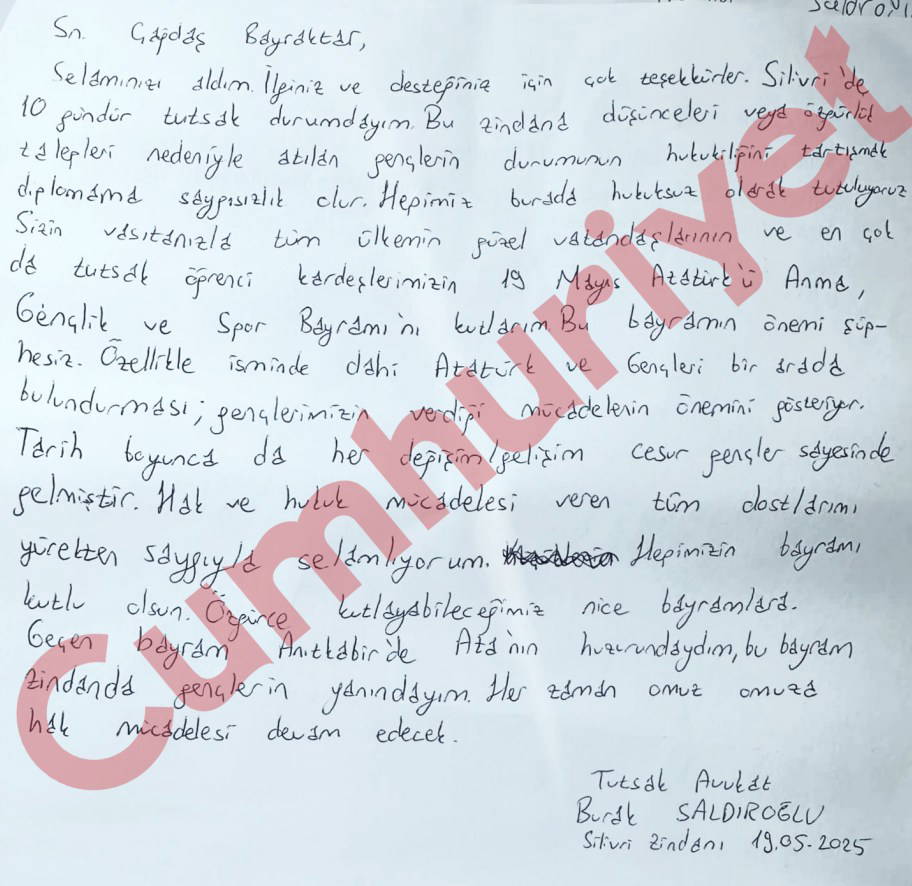 Saldıroğlu
Sn. Çağdaş Bayraktar,
Selamınızı aldım. İlginiz ve desteğiniz için çok teşekkürler. Silivri'de
10 gündür tutsak durumdayım. Bu zindana düşünceleri veya özgürlük
talepleri nedeniyle atılan gençlerin durumunun hukukiliğini tartışmak
diplomama saygısızlık olur. Hepimiz burada hukuksuz olarak tutuluyoruz
Sizin vasıtanızla tüm ülkemin güzel vatandaşlarının ve en çok
da tutsak öğrenci kardeşlerimizin 19 Mayıs Atatürk'ü Anma,
Gençlik ve Spor Bayramı'nı kutlarım. Bu bayramın önemi şüp-
hesiz. Özellikle isminde dahi Atatürk ve Gençleri bir arada
bulundurması; gençlerimizin verdiği mücadelenin önemini gösteriyor.
Tarih boyunca da her değişim/gelişim cesur gençler sayesinde
gelmiştir. Hak ve hukuk mücadelesi veren tüm dostlarımı
yürekten saygıyla selamlıyorum. Hepimizin bayramı
kutlu olsun. Özgürce kutlayabileceğimiz nice bayramlara.
Geçen bayram Anıtkabir'de Ata'nın huzurundaydım, bu bayram
zindanda gençlerin yanındayım. Her zaman omuz omuza
hak mücadelesi devam edecek.
Tutsak Avukat
Burak SALDIROĞLU
Silivri zindanı 19.05.2025
Cumhuriyet